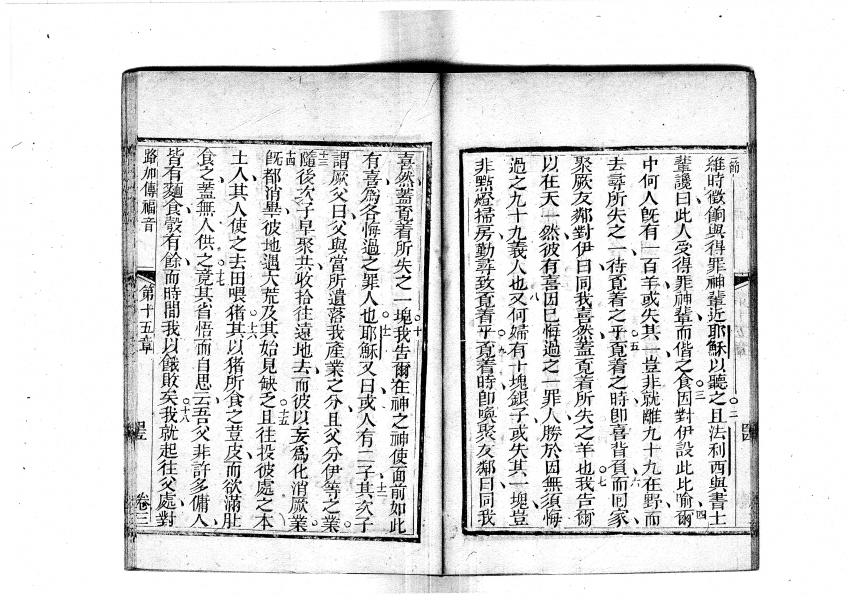 一節
維時徵餉與得罪神輩近耶穌以聽之二且法利西與書士
輩議曰此人受得罪神輩而偕之食三因對伊設此比喻四爾
中何人旣有一百羊或失其一豈非就離九十九在野而
去尋所失之一待覔着之乎五覔着之時卽喜背負而六回家
聚厥友鄰對伊曰同我喜然蓋覔着所失之羊也七我告爾
以在天一然彼有喜因已悔過之一罪人勝於因無須悔
過之九十九義人也八又何婦有十塊銀子或失其一塊豈
非點燈掃房勤尋致覔着乎九覔着時卽喚聚友鄰曰同我
喜然蓋覔着所失之一塊十我告爾在神之神使面前如此
有喜爲各悔過之罪人也十一耶穌又曰或人有二子十二其次子
謂厥父曰父與當所遺落我產業之分且父分伊等之業
十三隨後次子早聚共收拾往遠地去而彼以妄爲化消厥業
十四旣都消舉彼地遇大荒及其始見缺乏十五且往投彼處之本
土人其人使之去田喂猪十六其以猪所食之荳皮而欲滿肚
食之蓋無人供之十七竟其省悟而自思云吾父非許多傭人
皆有麵食彀有餘而時間我以餓敗矣十八我就起往父處對
路加傳福音
第十五章
卷三